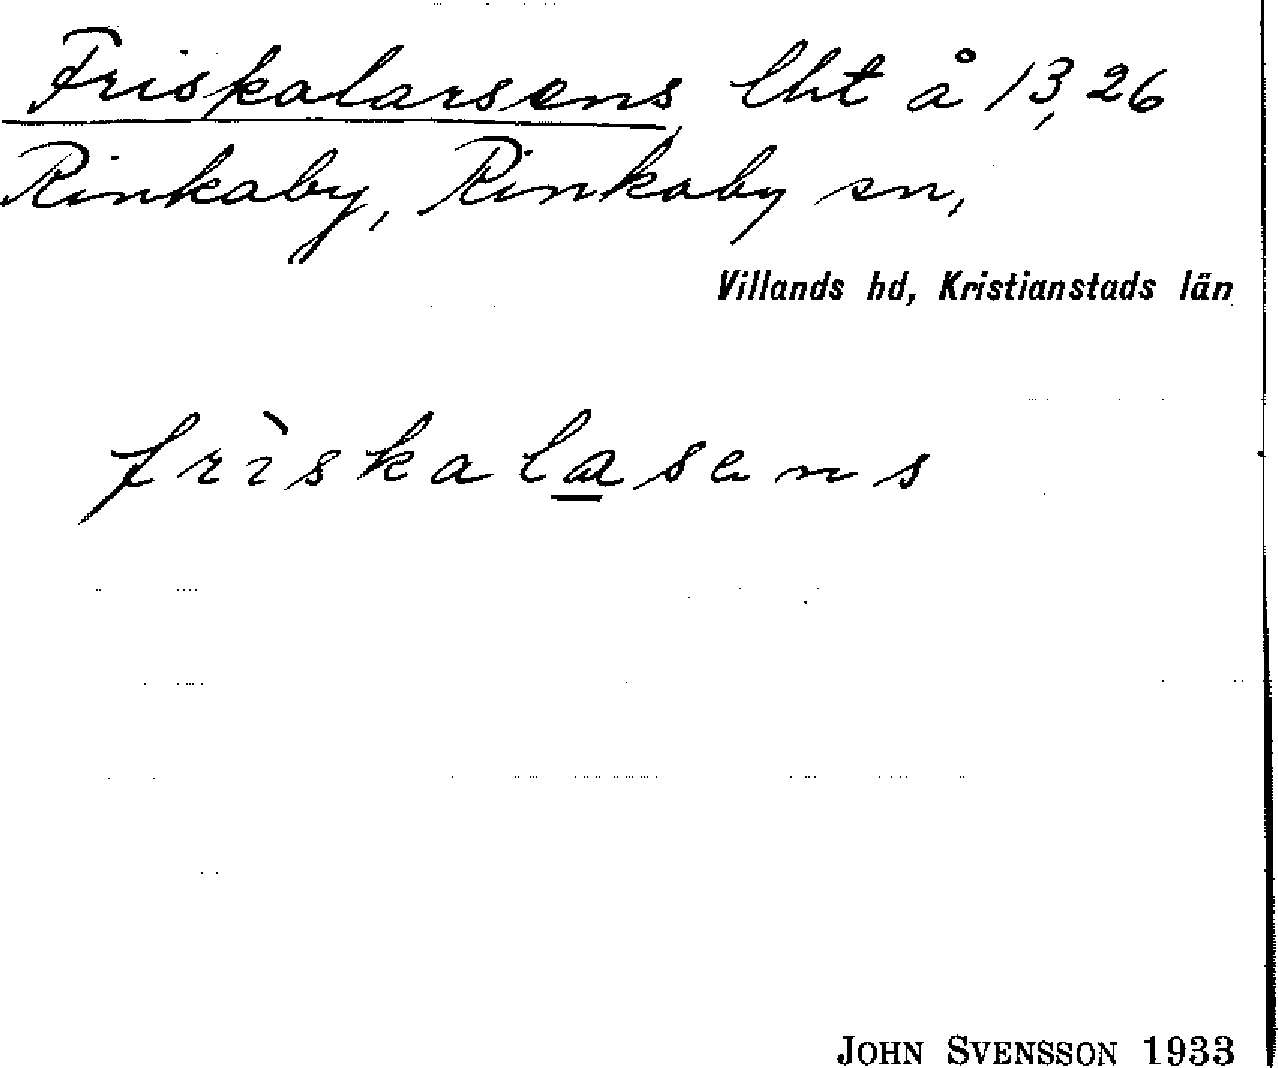 Friskalarsens lht å 13,26
Rinkaby, Rinkaby sn,
Villands hd, Kristianstads län
frìskalasens
JOHN SVENSSON 1933